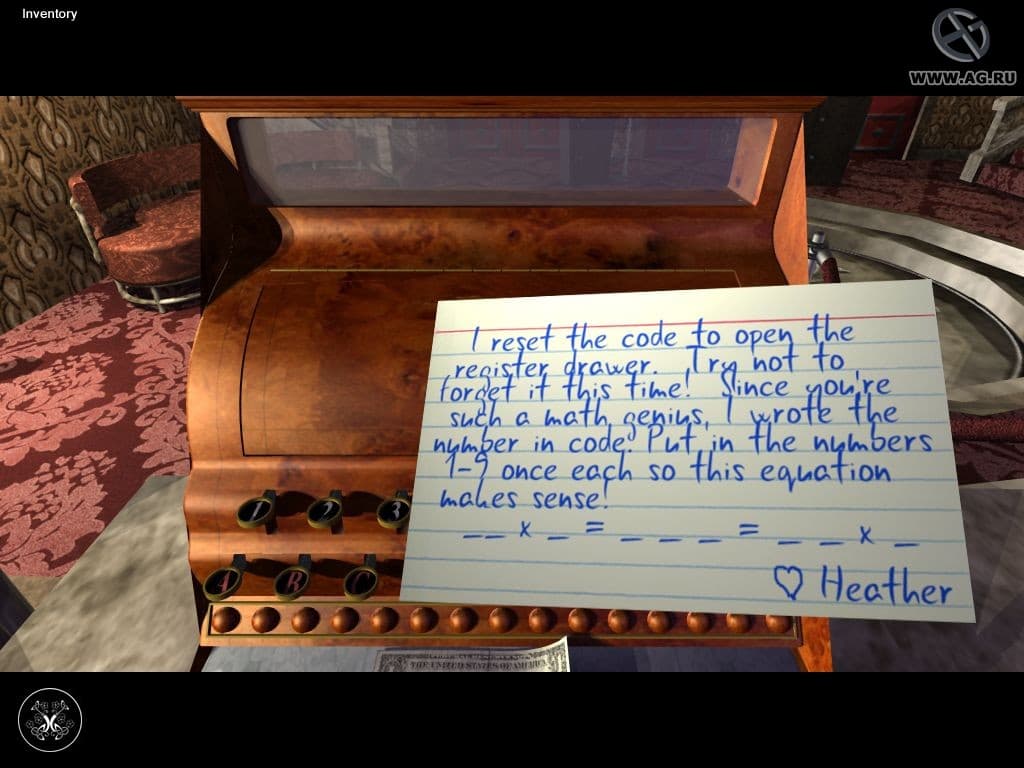 Inventory
WWW.AG.RU
I reset the code to open the
register drawer. Try not to
forget it this time! Since you're
such a math genius, I wrote the
number in code! Put in the numbers
1-9 once each so this equation
makes sense!
_ _ x _ = _ _ _ = _ _ x _
♡ Heather
1 2 3
A B C
THE UNITED STATES OF AMERICA